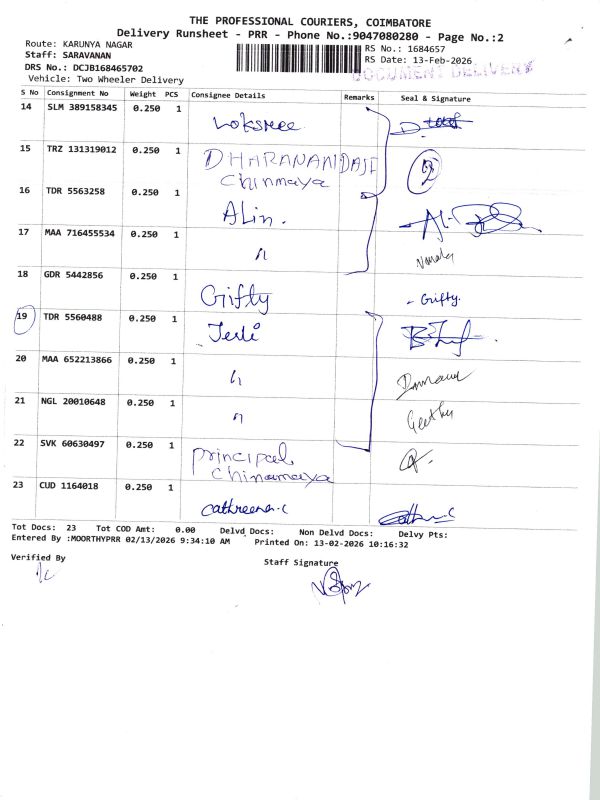 THE PROFESSIONAL COURIERS, COIMBATORE
Delivery Runsheet - PRR - Phone No.:9047080280 - Page No.:2
Route: KARUNYA NAGAR
Staff: SARAVANAN
DRS No.: DCJB168465702
Vehicle: Two Wheeler Delivery
RS No.: 1684657
RS Date: 13-Feb-2026
DOCUMENT DELIVERY
S No Consignment No Weight PCS Consignee Details Remarks Seal & Signature
14 SLM 389158345 0.250 1 Loksree
15 TRZ 131319012 0.250 1 DHARANANIDASE
Chinmaya
16 TDR 5563258 0.250 1 Alin.
17 MAA 716455534 0.250 1 "
18 GDR 5442856 0.250 1 Gifty - Gifty.
19 TDR 5560488 0.250 1 Jerli
20 MAA 652213866 0.250 1 "
21 NGL 20010648 0.250 1 " Geetha
22 SVK 60630497 0.250 1 principal
Chinamaya
23 CUD 1164018 0.250 1 Cathreena.C
Tot Docs: 23 Tot COD Amt: 0.00 Delvd Docs: Non Delvd Docs: Delvy Pts:
Entered By :MOORTHYPRR 02/13/2026 9:34:10 AM Printed On: 13-02-2026 10:16:32
Verified By Staff Signature